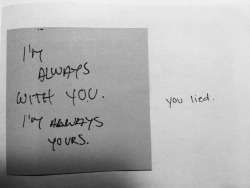 I'M
ALWAYS
WITH YOU.
I'M ALWAYS
YOURS.
you lied.